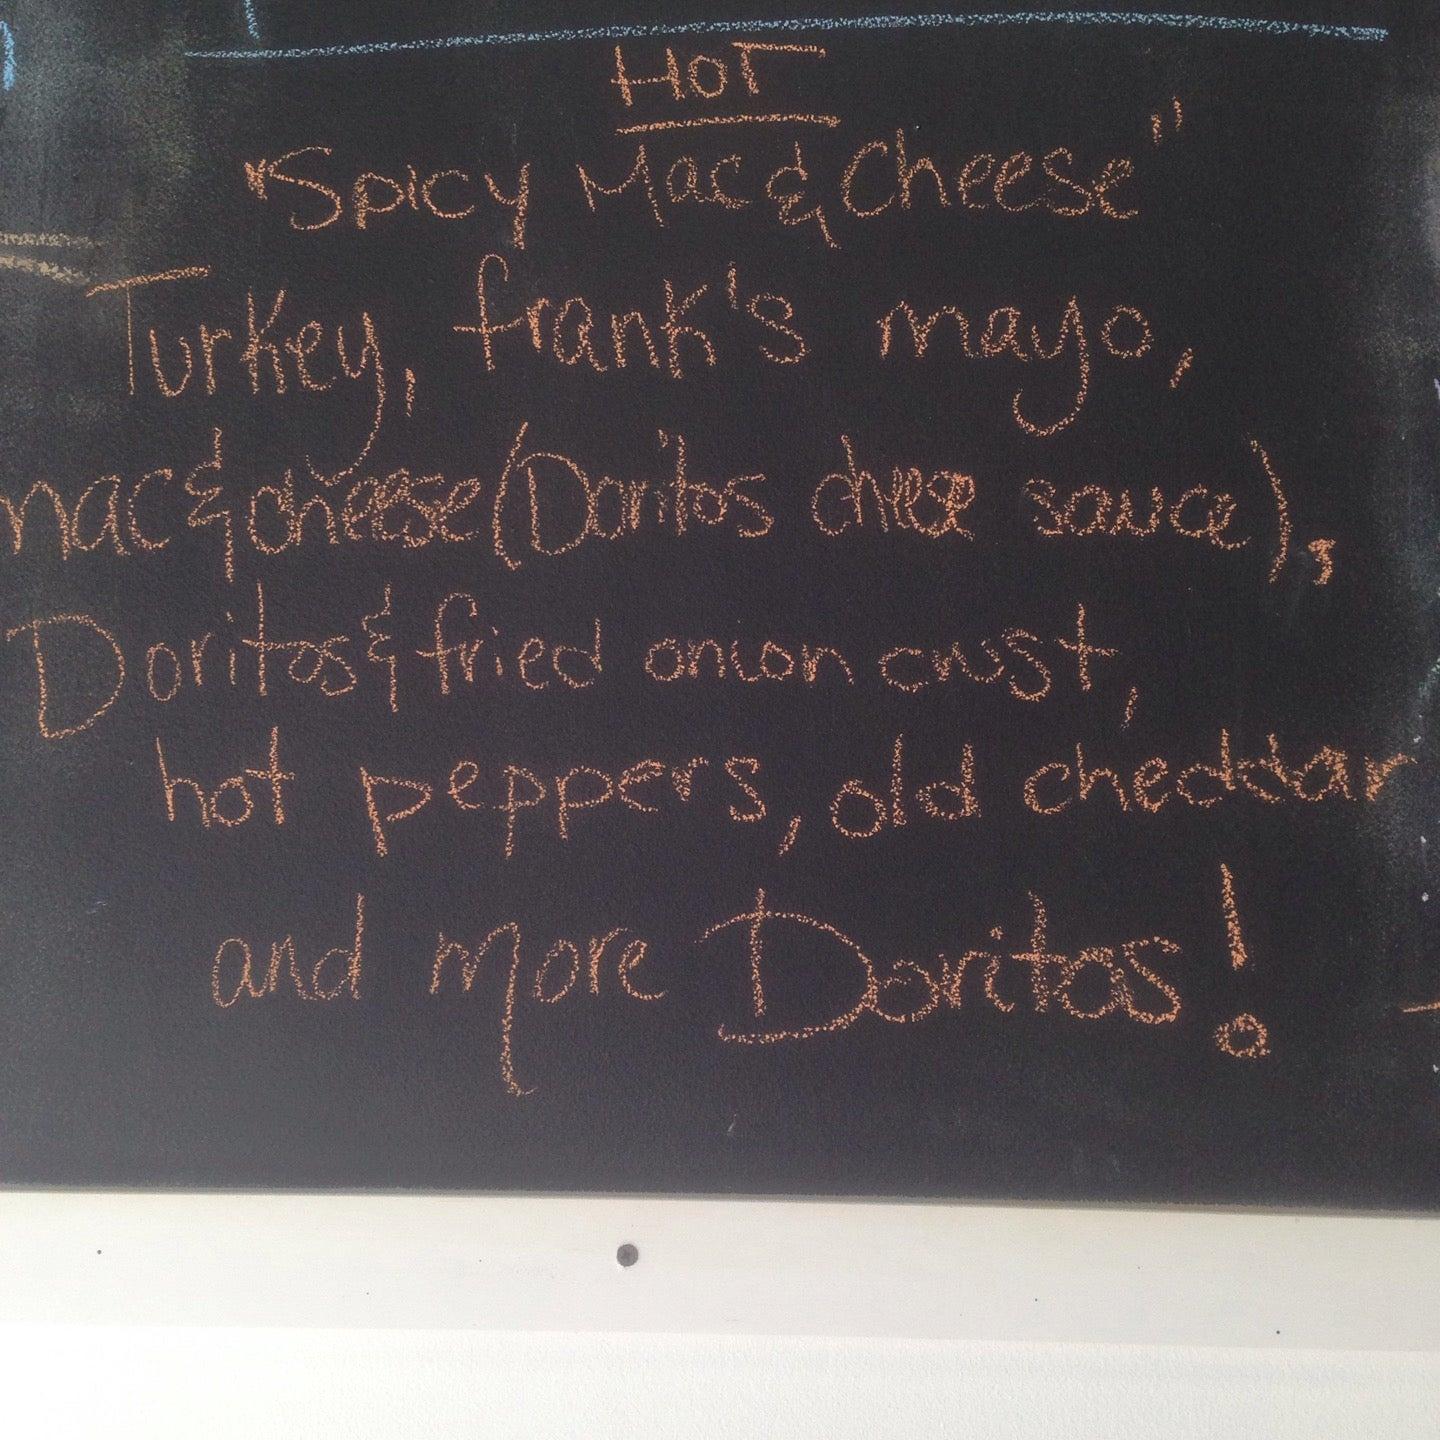 HOT
"Spicy Mac & Cheese"
Turkey, frank's mayo,
mac & cheese (Doritos cheese sauce),
Doritos & fried onion crust,
hot peppers, old cheddar
and more Doritos!